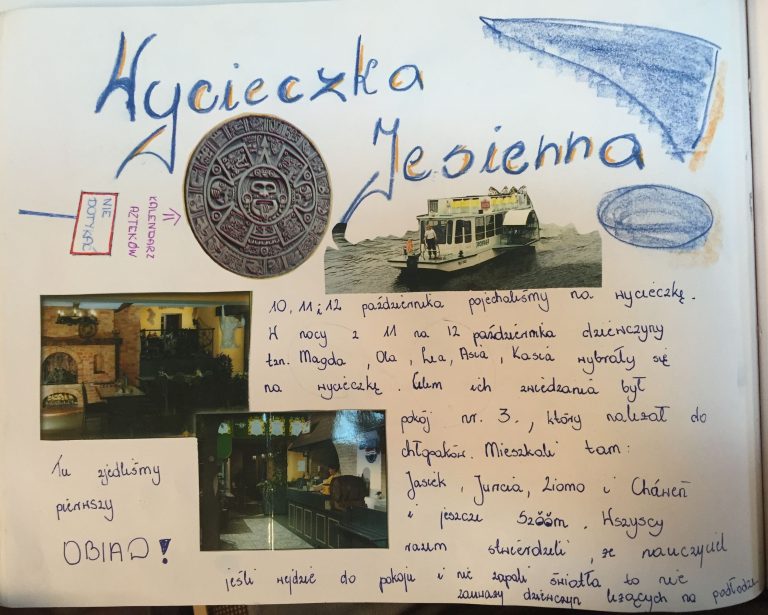 Wycieczka
Jesienna
NIE
DOTYKAĆ
KALENDARZ
AZTEKÓW
10, 11 i 12 października pojechaliśmy na wycieczkę.
W nocy z 11 na 12 października dziewczyny
tzn. Magda, Ola, Lea, Asia, Kasia wybrały się
na wycieczkę. Celem ich zwiedzania był
pokój nr. 3., który należał do
chłopaków. Mieszkali tam:
Jasiek, Juncia, Ziomo i
i jeszcze Szööm. Wszyscy
razem stwierdzili, że nauczyciel
jeśli wejdzie do pokoju i nie zapali światła to nie
zauważy dziewczyn leżących na podłodze
Tu zjedliśmy
pierwszy
OBIAD!